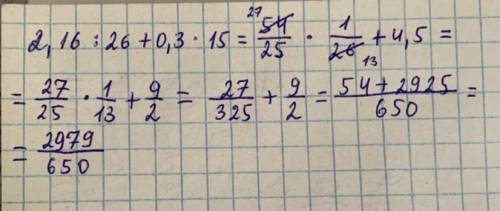 2,16 : 26 + 0,3 · 15 = 27 54/25 · 1/26 13 + 4,5 =
= 27/25 · 1/13 + 9/2 = 27/325 + 9/2 = 54 + 2925/650 =
= 2979/650